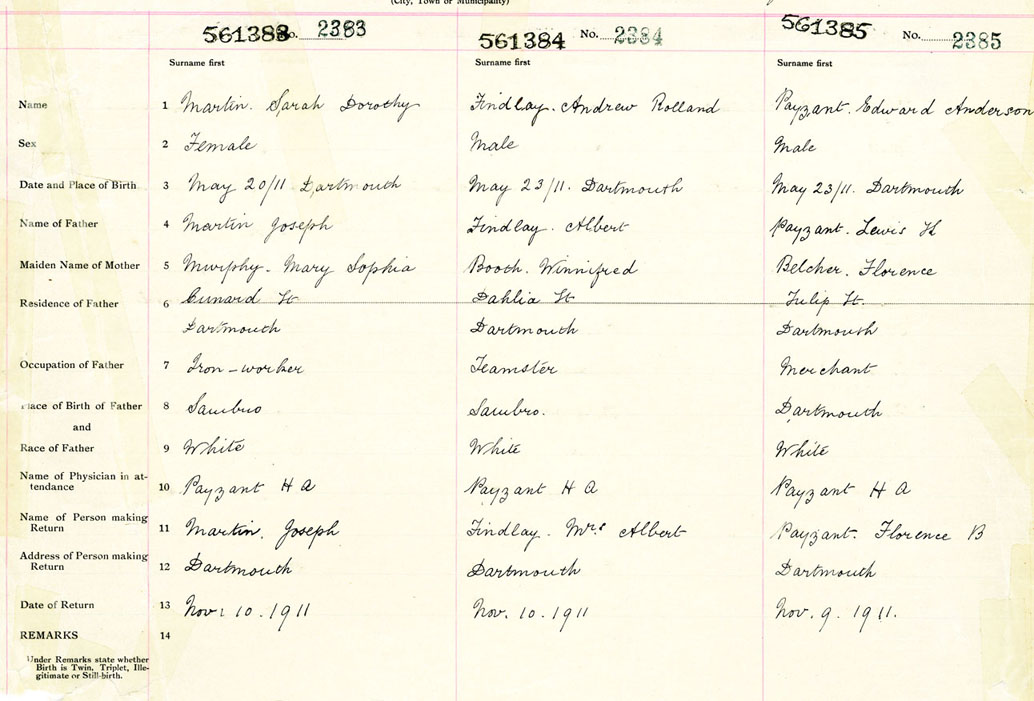 (City, Town or Municipality)
561383 No. 2383 561384 No. 2384 561385 No. 2385
Surname first Surname first Surname first
Name 1 Martin. Sarah Dorothy Findlay. Andrew Rolland Payzant. Edward Anderson
Sex 2 Female Male Male
Date and Place of Birth 3 May 20/11 Dartmouth May 23/11. Dartmouth May 23/11. Dartmouth
Name of Father 4 Martin Joseph Findlay. Albert Payzant. Lewis H
Maiden Name of Mother 5 Murphy. Mary Sophia Booth. Winnifred Belcher. Florence
Residence of Father 6 Cunard St Dahlia St Tulip St.
Dartmouth Dartmouth Dartmouth
Occupation of Father 7 Iron-worker Teamster Merchant
Place of Birth of Father 8 Sambro Sambro. Dartmouth
and
Race of Father 9 White White White
Name of Physician in at-
tendance 10 Payzant H A Payzant H A Payzant H A
Name of Person making
Return 11 Martin. Joseph Findlay. Mrs Albert Payzant. Florence B
Address of Person making
Return 12 Dartmouth Dartmouth Dartmouth
Date of Return 13 Nov. 10. 1911 Nov. 10. 1911 Nov. 9. 1911.
REMARKS 14
Under Remarks state whether
Birth is Twin, Triplet, Ille-
gitimate or Still-birth.